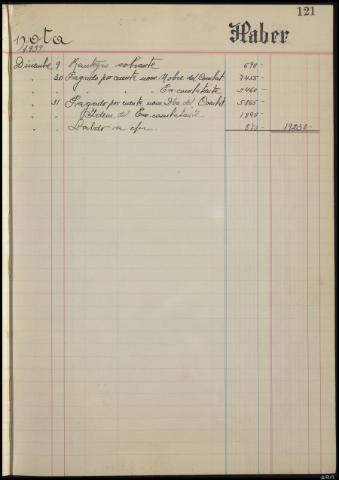 121
nota Haber
1939
Diciembre 9 Reintegro sobrante 690-
" 30 Pagado por cuenta nom Mobre. del Combat 7455-
" " " " Ex-combatiente 3460-
" 31 Pagado por cuenta nom Dbre del Combat 5865-
" " Idem del Ex-combatiente 1890-
" " Saldo en efvo. 870- 19230-